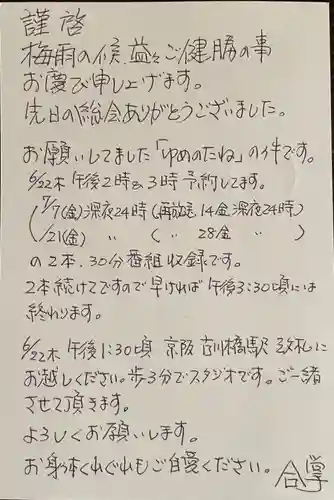 謹啓
梅雨の候、益々ご健勝の事
お慶び申し上げます。
先日の総会ありがとうございました。
お願いしてました「ゆめのたね」の件です。
6/22木 午後2時&3時予約してます。
7/7(金)深夜24時(再放送 14金 深夜24時)
/21(金) 〃 ( 〃 28金 〃 )
の2本、30分番組収録です。
2本続けてですので早ければ午後3:30頃には
終わります。
6/22木 午後1:30頃 京阪 古川橋駅 改札に
お越しください。歩3分でスタジオです。ご一緒
させて頂きます。
よろしくお願いします。
お身体くれぐれもご自愛ください。
合掌